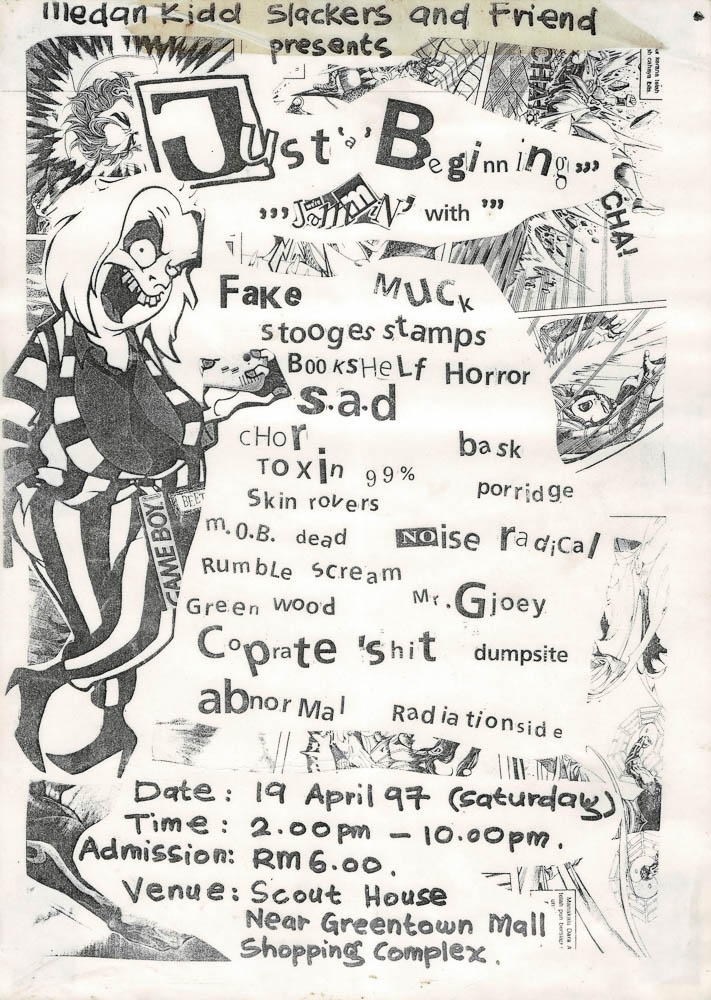 Medan Kidd Slackers and Friend
presents
Just 'a' Beginning,,,
,,,Jammin' with '''
Fake Muck
stooges stamps
BookSHeLf Horror
s.a.d
cHor bask
Toxin 99%
porridge
Skin rovers
m.o.B. dead NOise radiCal
RumbLe scream
Green wood Mr. Gjoey
Coprate 'shit dumpsite
abnorMal Radiationside
CHA!
GAME BOY
Date: 19 April 97 (saturday)
Time: 2.00pm - 10.00pm.
Admission: RM6.00.
Venue: Scout House
Near Greentown Mall
Shopping Complex.